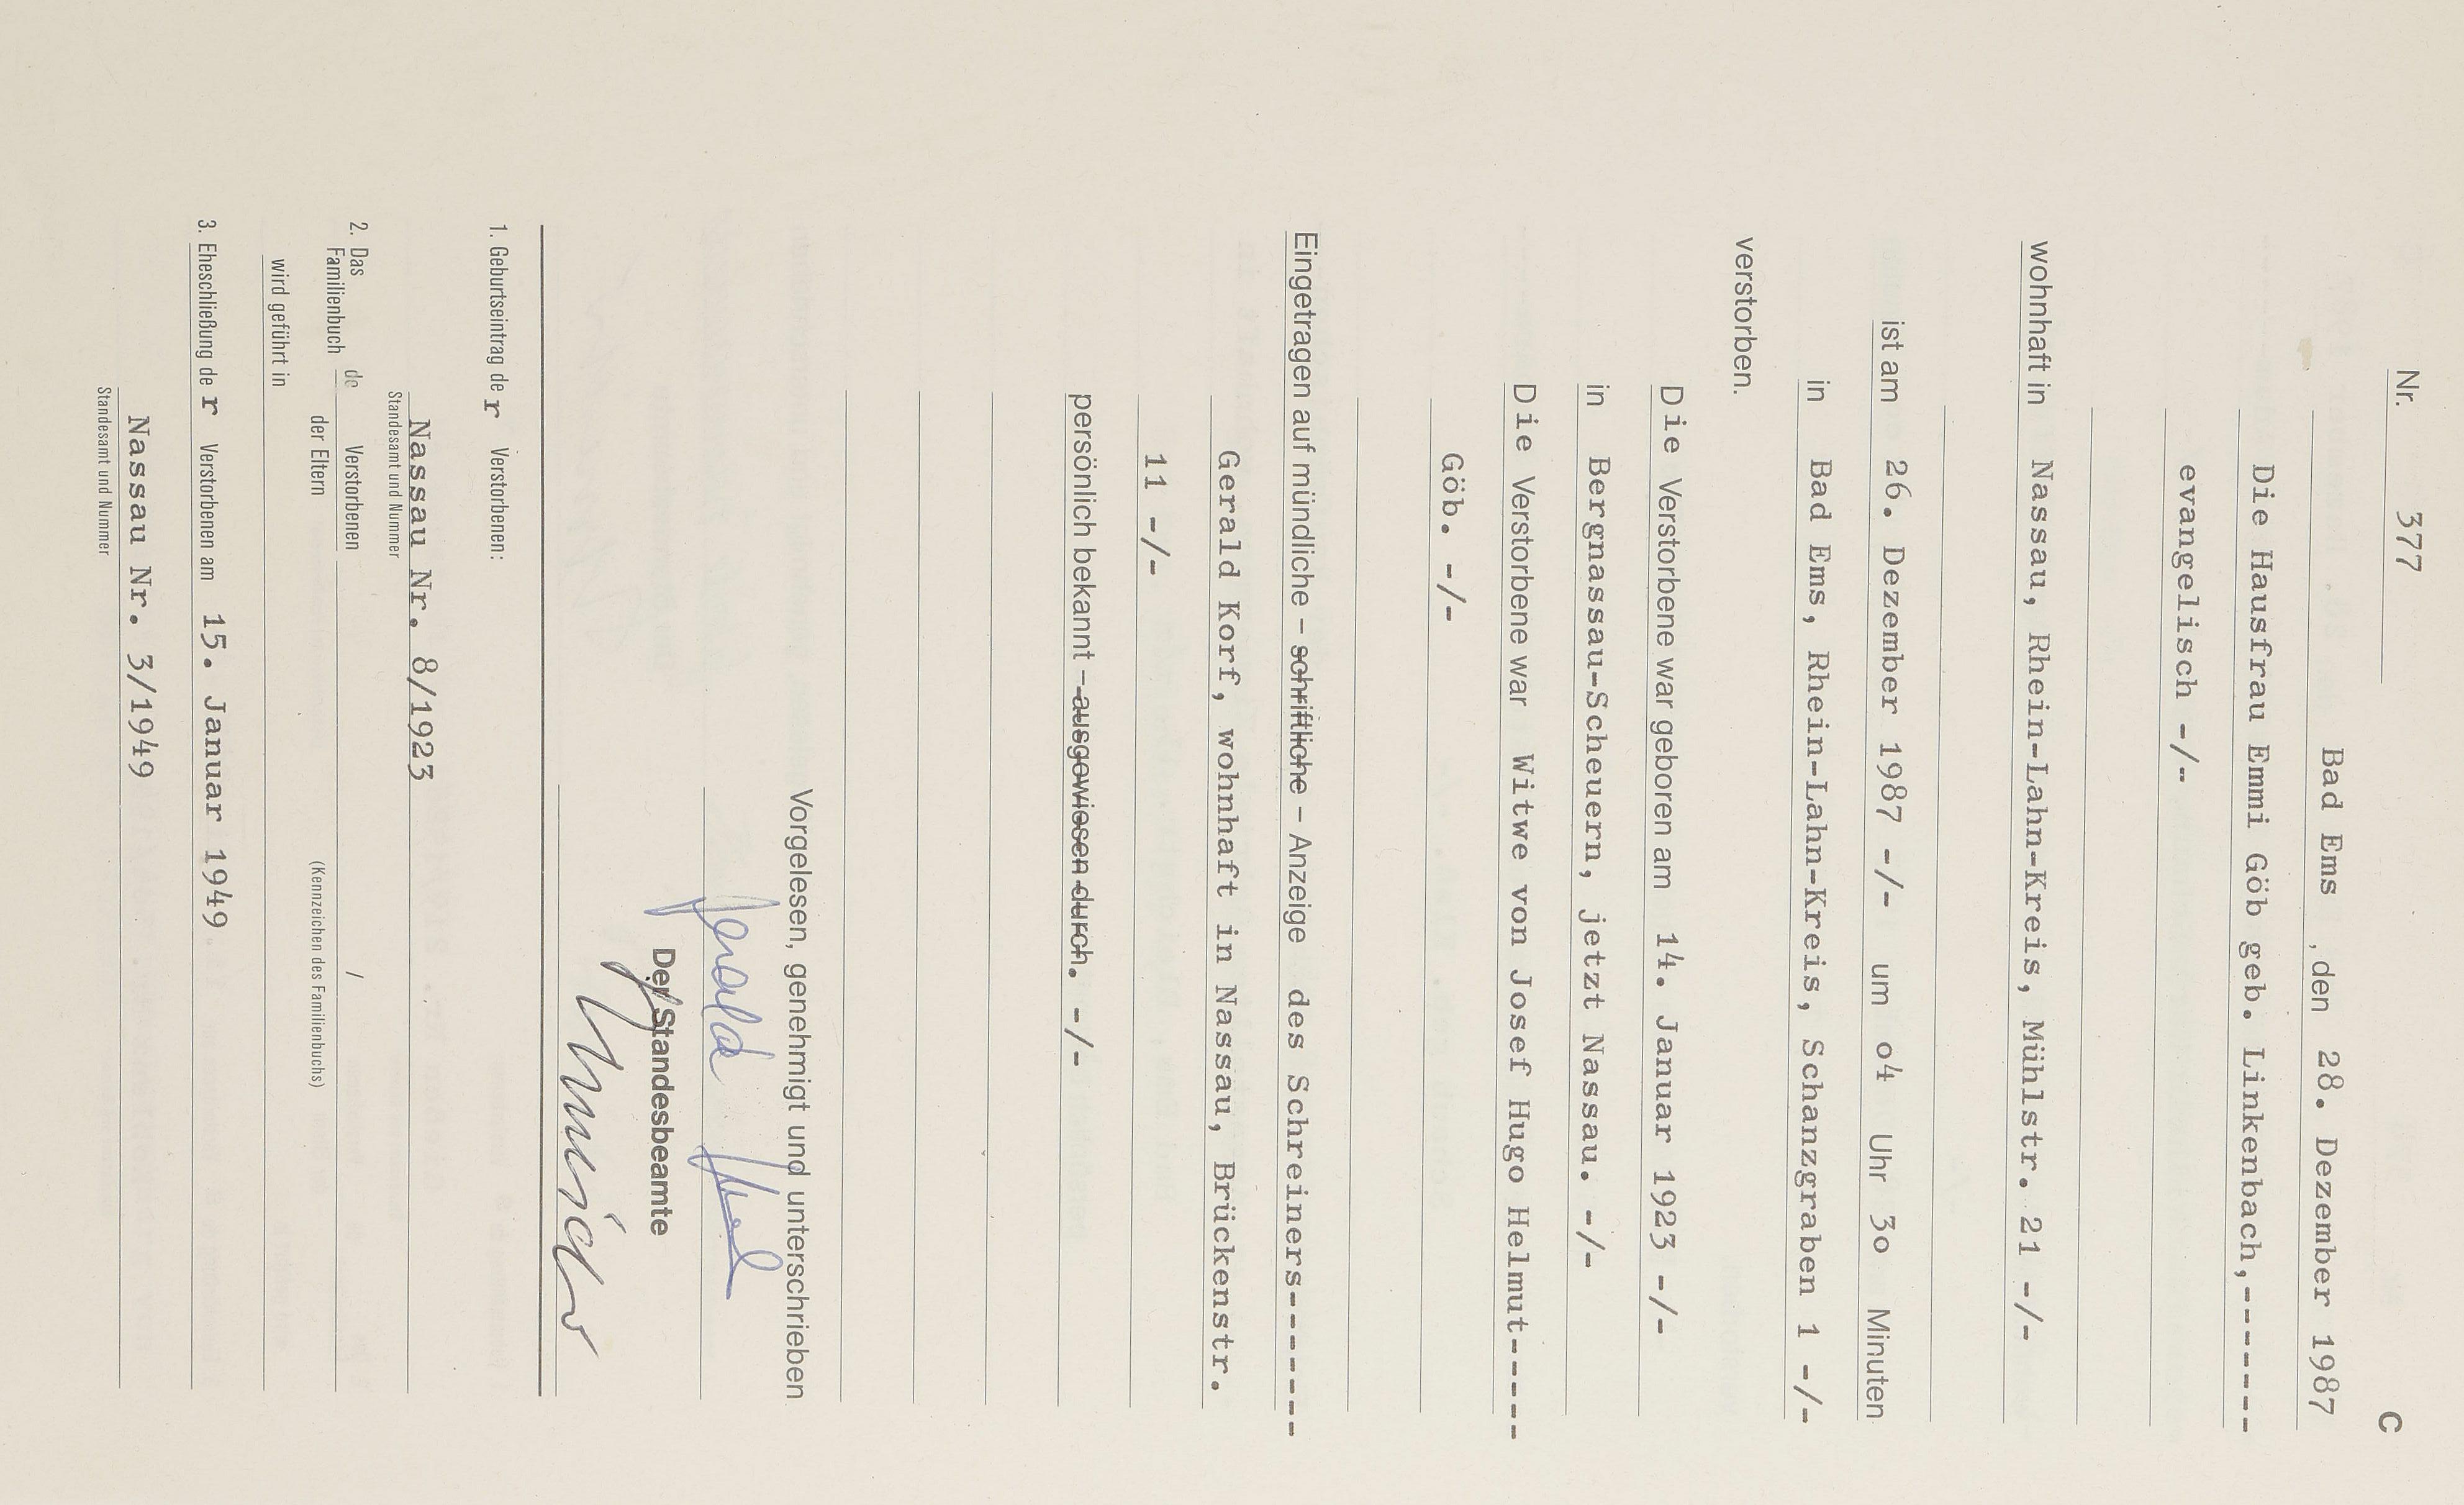 C
Nr. 377
Bad Ems , den 28. Dezember 1987
Die Hausfrau Emmi Göb geb. Linkenbach,-------
evangelisch -/-
wohnhaft in Nassau, Rhein-Lahn-Kreis, Mühlstr. 21 -/-
ist am 26. Dezember 1987 -/- um o4 Uhr 3o Minuten
in Bad Ems, Rhein-Lahn-Kreis, Schanzgraben 1 -/-
verstorben.
Die Verstorbene war geboren am 14. Januar 1923 -/-
in Bergnassau-Scheuern, jetzt Nassau. -/-
Die Verstorbene war Witwe von Josef Hugo Helmut-----
Göb. -/-
Eingetragen auf mündliche – schriftliche – Anzeige des Schreiners-------
Gerald Korf, wohnhaft in Nassau, Brückenstr.
11 -/-
persönlich bekannt – ausgewiesen durch. -/-
Vorgelesen, genehmigt und unterschrieben
Gerald
Der Standesbeamte
1. Geburtseintrag der Verstorbenen:
Nassau Nr. 8/1923
Standesamt und Nummer
2. Das Familienbuch de Verstorbenen /
der Eltern (Kennzeichen des Familienbuchs)
wird geführt in
3. Eheschließung der Verstorbenen am 15. Januar 1949
Nassau Nr. 3/1949
Standesamt und Nummer